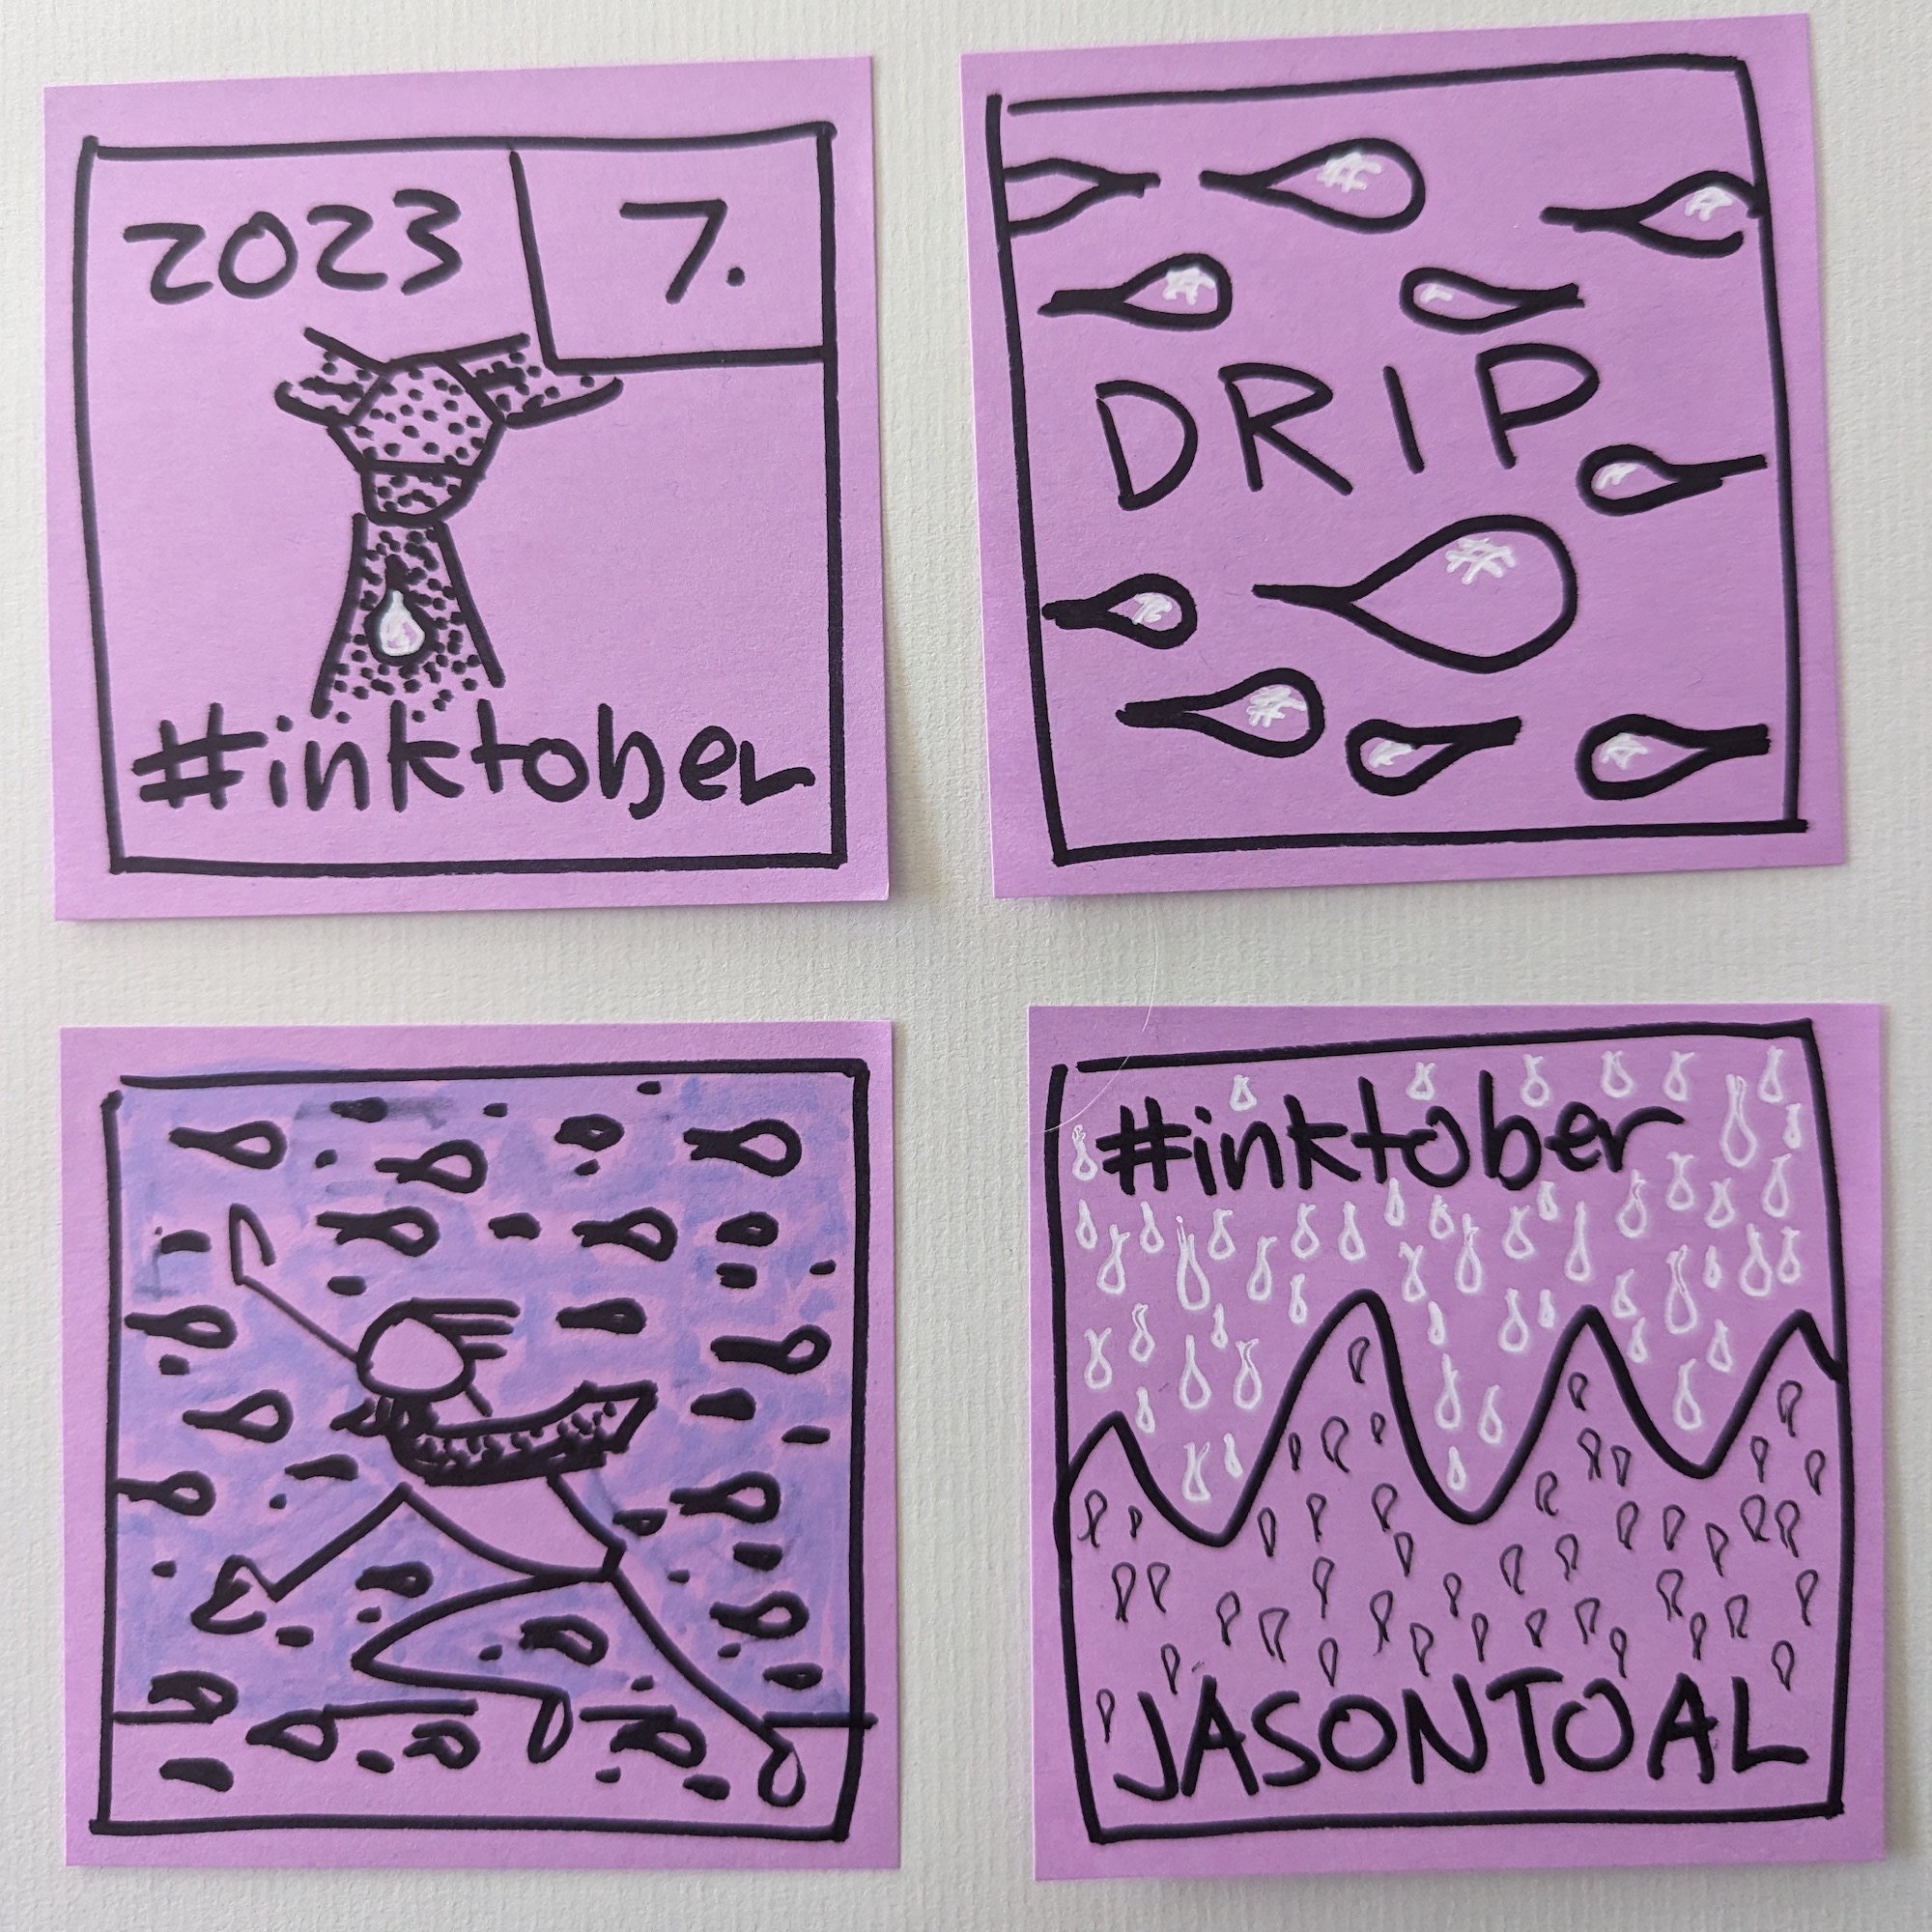 2023 7.
#inktober
DRIP
#inktober
JASONTOAL